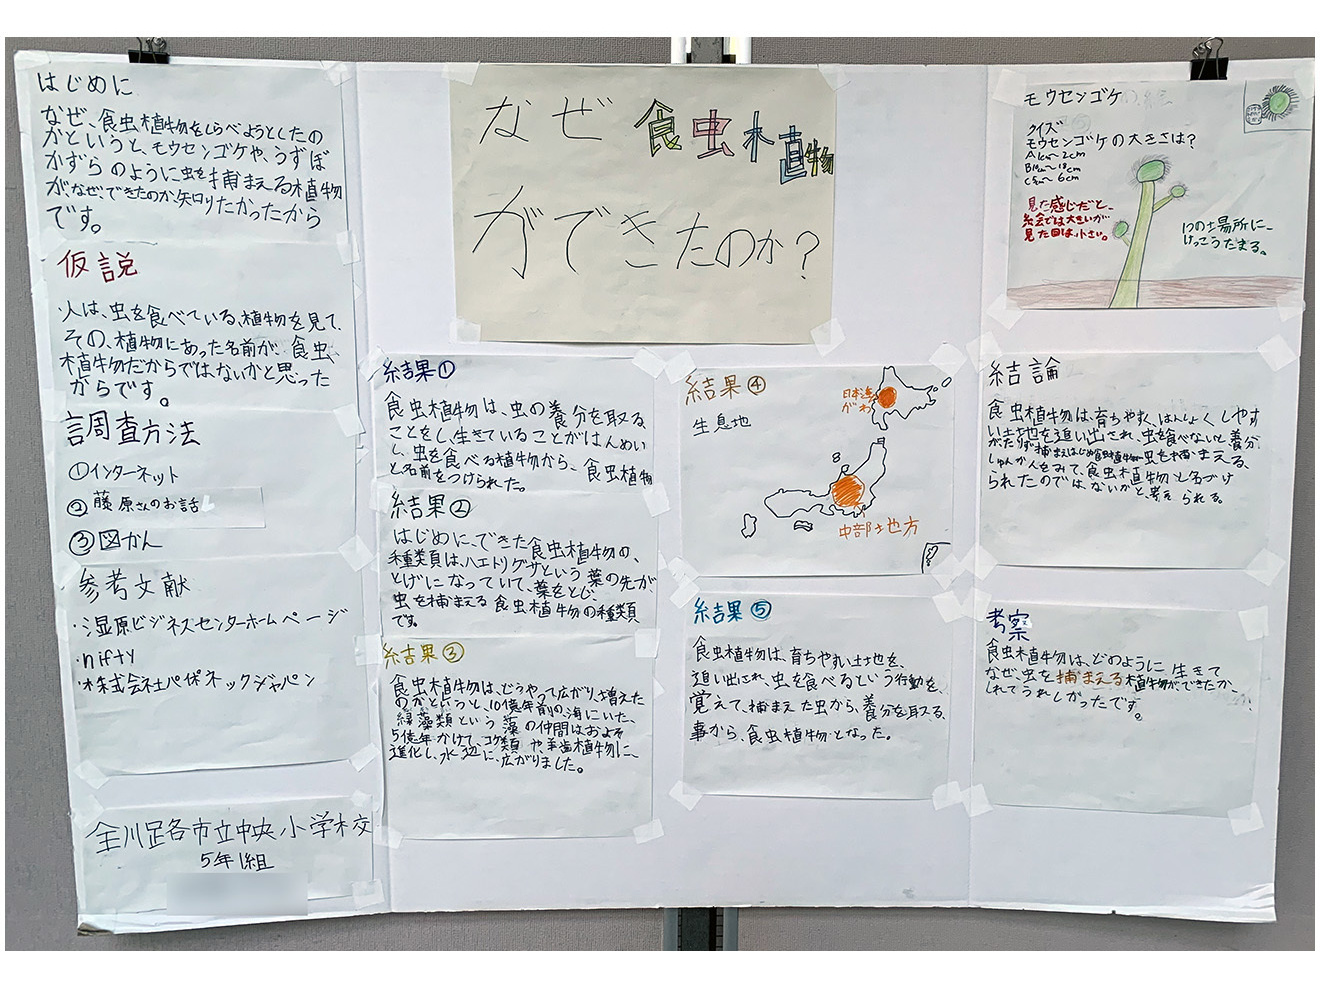 はじめに
なぜ、食虫植物をしらべようとしたの
かというと、モウセンゴケや、うずぼ
かずらのように虫を捕まえる植物
がなぜ、できたのか、知りたかったから
です。
仮説
・人は、虫を食べている、植物を見て、
その、植物にあった名前が、食虫
植物だからではないかと思った
からです。
調査方法
①インターネット
②藤原さんのお話
③図かん
参考文献
・湿原ビジネスセンターホームページ
・nifty
・株式会社パイオネックジャパン
釧路市立中央小学校
5年1組
なぜ食虫植物
ができたのか?
結果①
食虫植物は、虫の養分を取る
ことをし、生きていることがはんめい
し、虫を食べる植物から、食虫植物
と名前をつけられた。
結果②
はじめに、できた食虫植物の、
種類は、ハエトリグサという葉の先が、
とげになっていて、葉をとじ、
虫を捕まえる食虫植物の種類
です。
結果③
食虫植物は、どうやって広がり、増えた
のかというと、10億年前の海にいた、
緑藻類という藻の仲間はおよそ
5億年かけて、コケ類や羊歯植物に、
進化し、水辺に、広がりました。
結果④
生息地
日本海
がわ
中部地方
結果⑤
食虫植物は、育ちやすい土地を、
追い出され、虫を食べるという行動を、
覚えて、捕まえた虫から、養分を取る、
事から、食虫植物となった。
モウセンゴケの絵
クイズ
モウセンゴケの大きさは?
見た感じだと、
絵では大きいが
見た目は小さい。
場所に、
けっこうたまる。
結論
食虫植物は、育ちやすく、はんしょくしやす
い土地を追い出され、虫を食べないと養分
がたりず捕まえはじめ食虫植物が虫を捕まえる、
しゅんかんをみて、食虫植物と名づけ
られたのでは、ないかと、考えられる。
考察
食虫植物は、どのように生きて
なぜ、虫を捕まえる植物ができたか、
しれてうれしかったです。